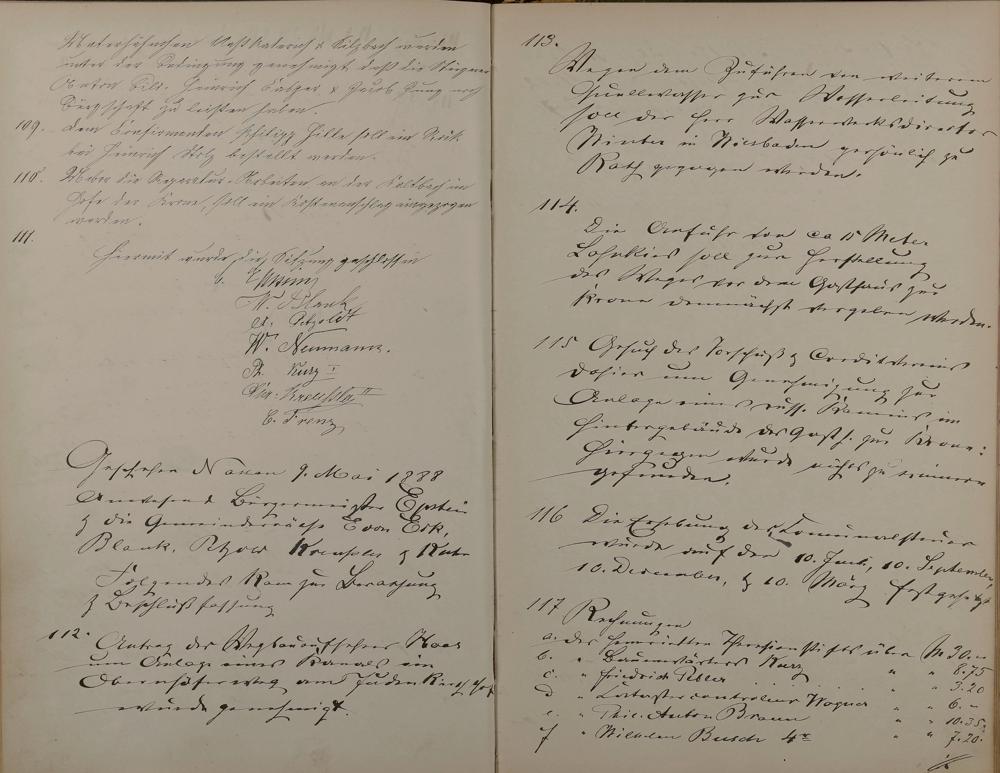 unter der Bedingung genehmigt, daß die Steigerer
Heinrich & Jacob Jung noch
Bürgschaft zu leisten haben.
109. Dem Confirmanten Philipp Hille soll ein Rock
bei Heinrich Stolz bestellt werden.
110. Ueber die Reparatur-Arbeiten an der Kaltbach im
Hofe der Krone, soll ein Kostenanschlag eingezogen
werden.
111.
Hiermit wurde die Sitzung geschlossen
Epstein
W. Blank
W. Neumann.
Ph. Kurz I
E. Frenz
Geschehen den 9. Mai 1888
Anwesend Bürgermeister Epstein
& die Gemeinderäthe E von Eck,
Blank, Petzold &
Folgendes kam zur Berathung
& Beschlußfassung
112. Antrag des Wegbauaufsehers Haas
um Anlage eines Kanals im
am Judenkirchhof
wurde genehmigt.
113.
Wegen dem Zuführen von weiterem
Quellwasser zur Wasserleitung
soll der Herr Wasserwerksdirector
Winter in Wiesbaden persönlich zu
Rath gezogen werden.
114.
Die Anfuhr von ca 15 Meter
Lahnkies soll zur Herstellung
des Weges vor dem Gasthaus zur
Krone demnächst vergeben werden.
115 Gesuch des Vorschuß & Creditvereins
dahier um Genehmigung zur
Anlage eines russ. Kamins im
Hintergebäude des Gasth. zur Krone:
Hiergegen wurde nichts zu erinnern
gefunden.
116 Die Erhebung der Communalsteuer
wurde auf den 10. Juni, 10. September,
10. December, & 10. März festgesetzt
117 Rechnungen
a. des Theresienstifts über M 30.–
b. " Baumwärters Kurz " " 8.75
c. " Friedrich " " 3.20
d " Wagner " " 6.–
e. " Phil. Anton Braun " " 10.35
f " Wilhelm Busch 4r " " 7.20